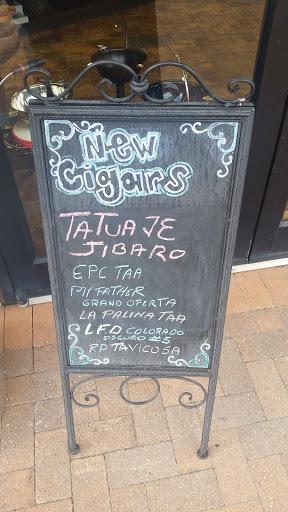 New
Cigars
TATUAJE
JIBARO
EPC TAA
MY FATHER
GRAND OFERTA
LA PALINA TAA
LFD COLORADO
OSCURO #5
RP TAVICUSA